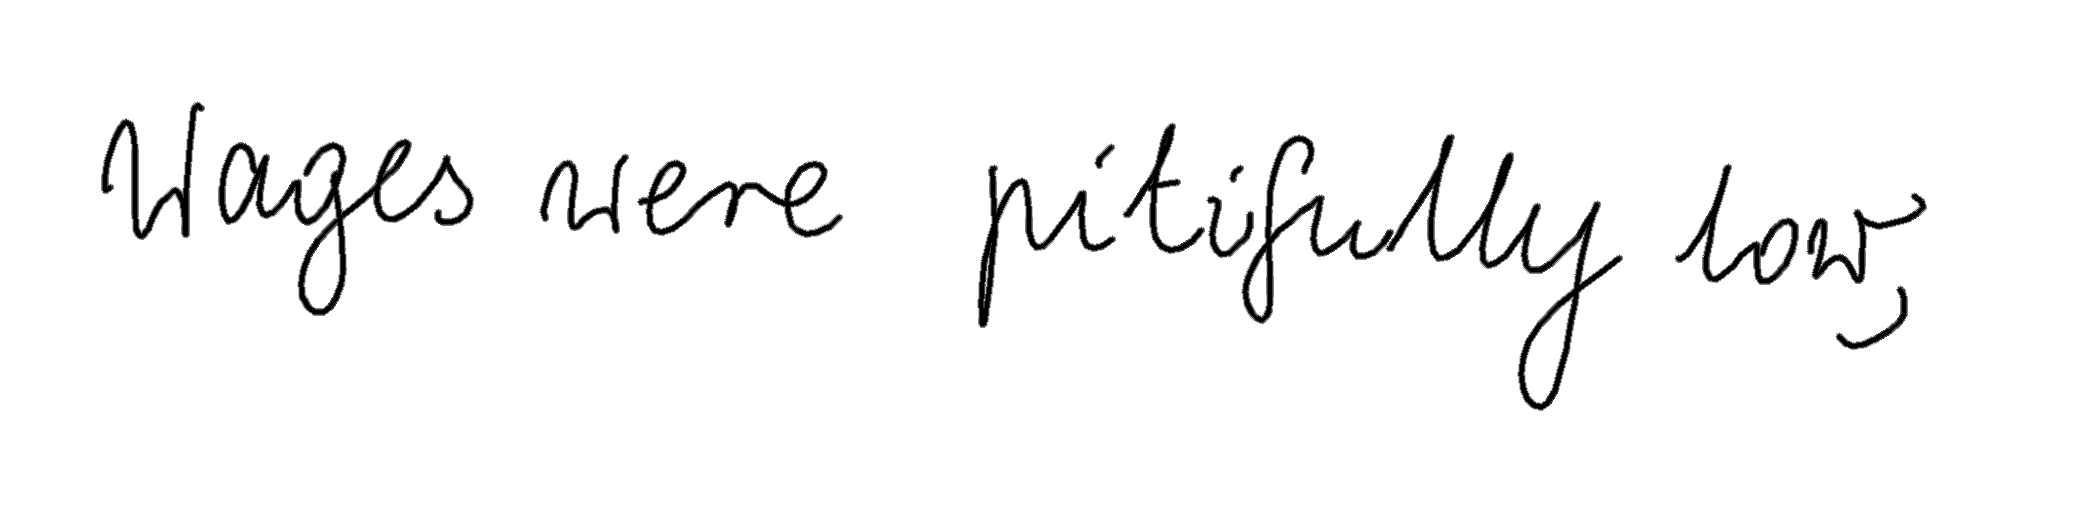 Wages were pitifully low,